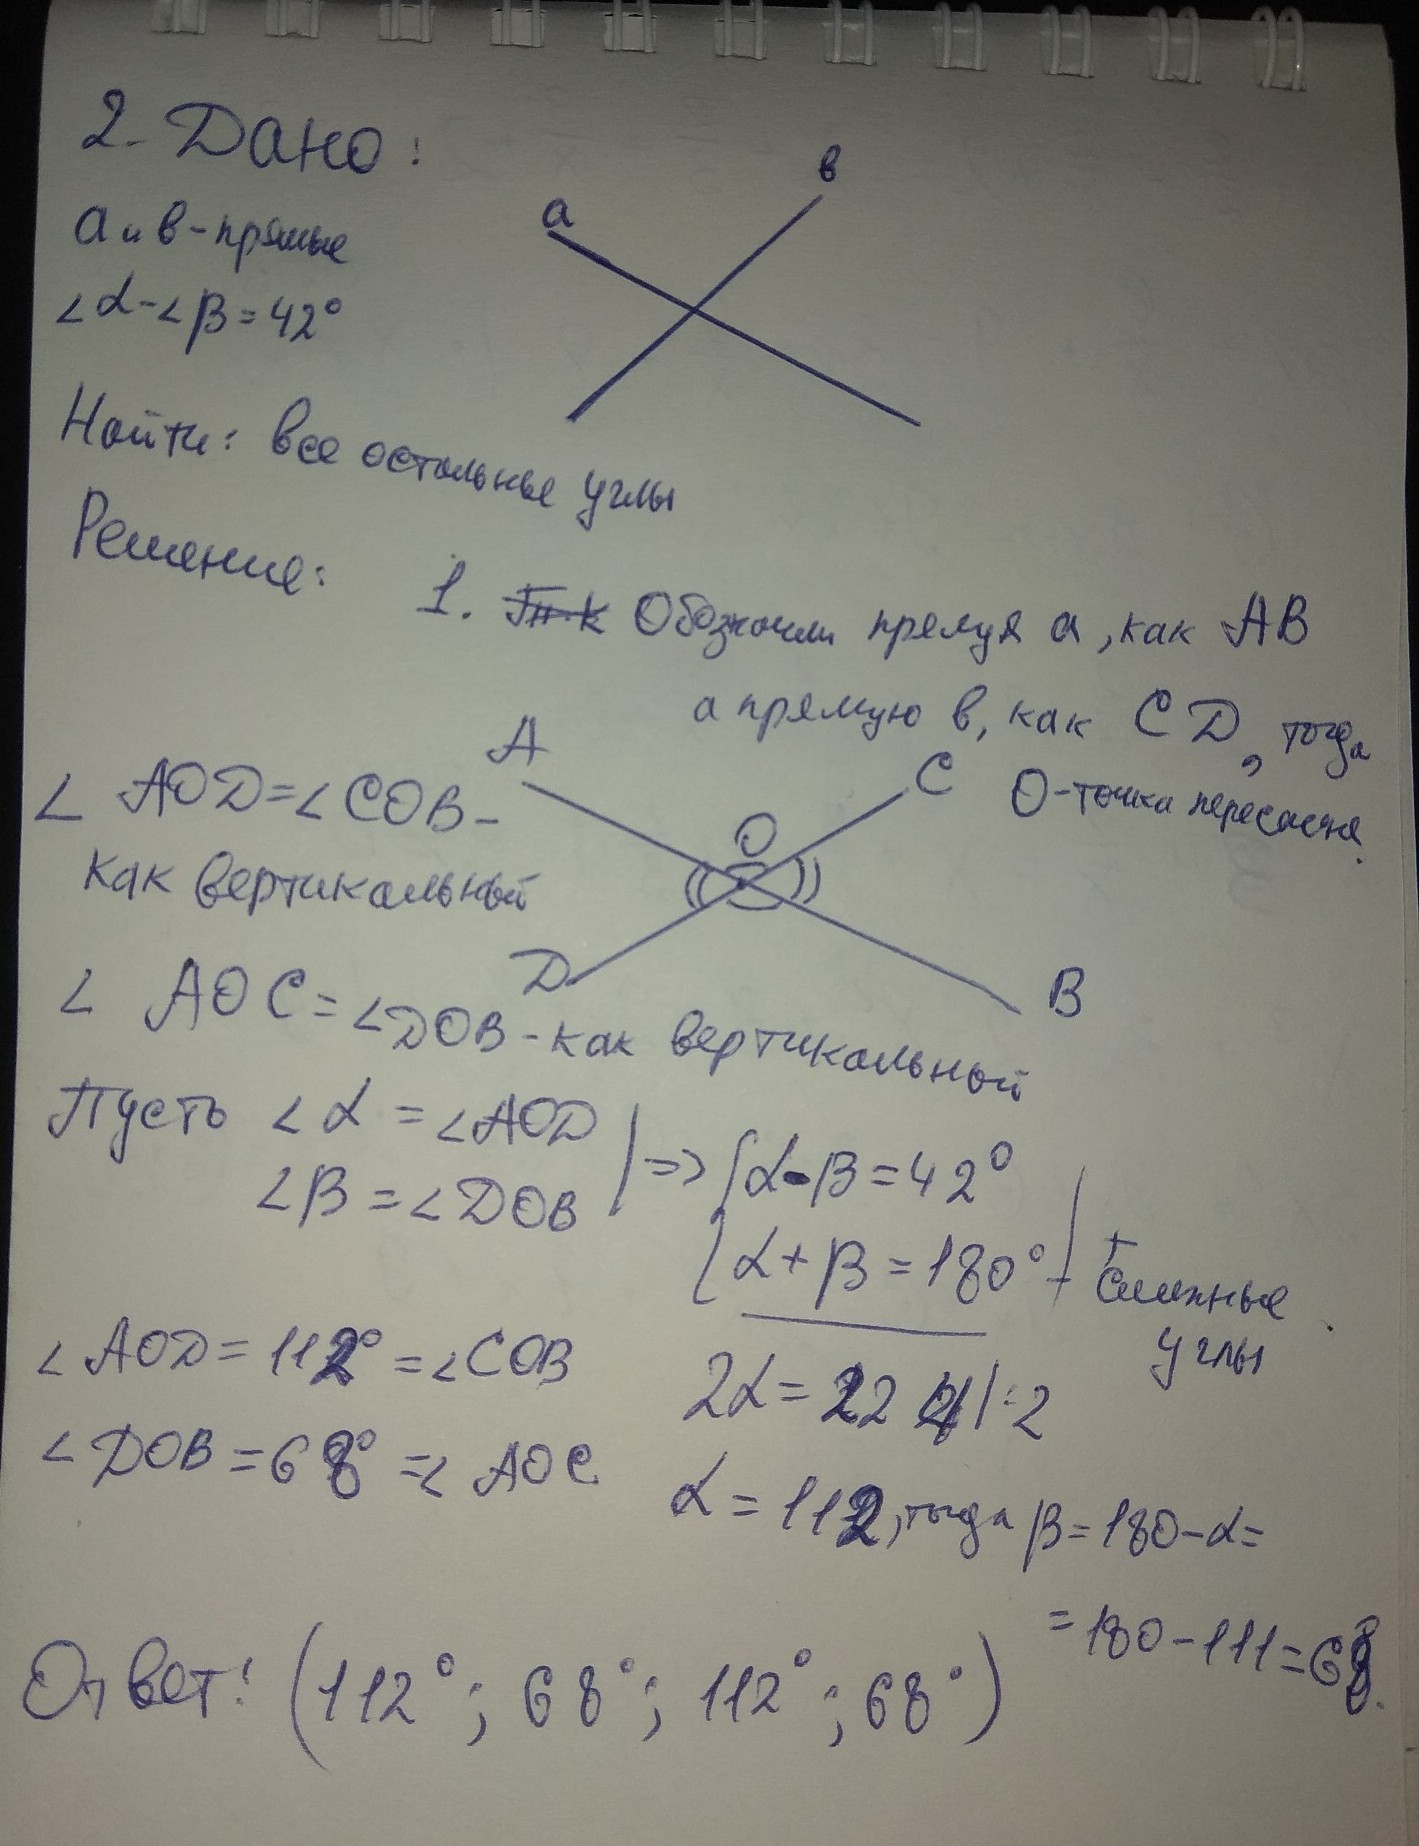 2. Дано:
а и в - прямые
∠α - ∠β = 42°
а
в
Найти: все остальные углы
Решение:
1. Т.к Обозначим прямую а, как АВ
а прямую в, как CD, тогда
О - точка пересечения.
∠ AOD = ∠COB -
как вертикальный
A
C
O
D
B
∠ AOC = ∠DOB - как вертикальный
Пусть ∠α = ∠AOD
∠β = ∠DOB
=> { α - β = 42°
α + β = 180° - смежные
углы
+
2α = 224 | :2
α = 112, тогда β = 180 - α =
= 180 - 111 = 68.
∠AOD = 112° = ∠COB
∠DOB = 68° = ∠ AOC
Ответ: (112°; 68°; 112°; 68°)